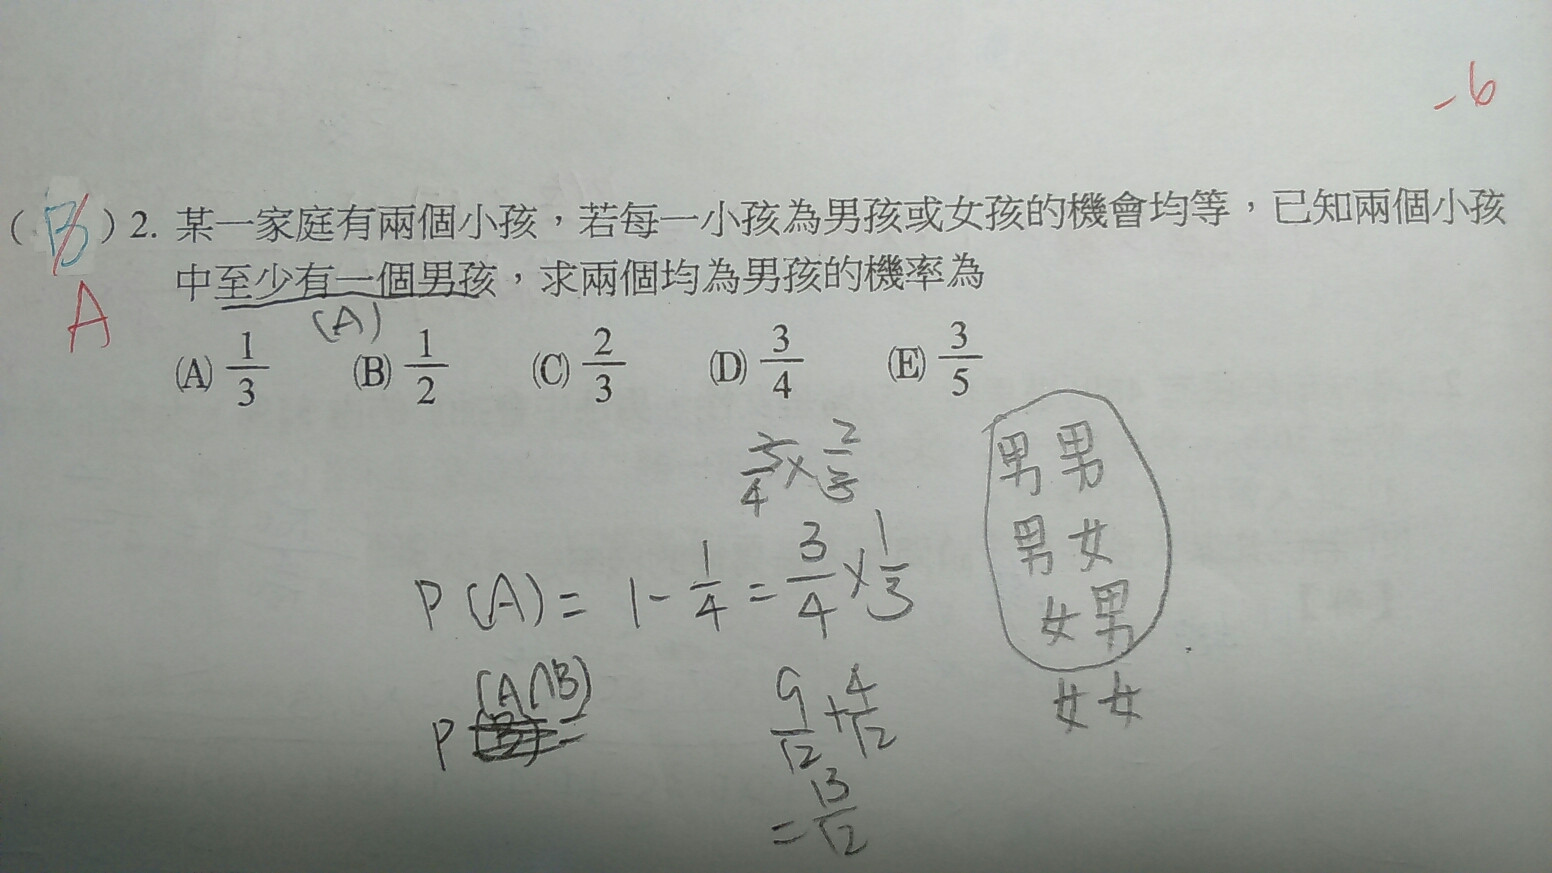 -6
(B)2. 某一家庭有兩個小孩，若每一小孩為男孩或女孩的機會均等，已知兩個小孩
A
中至少有一個男孩，求兩個均為男孩的機率為
(A)
(A) 1/3 (B) 1/2 (C) 2/3 (D) 3/4 (E) 3/5
3/4 × 2/3
男男
P(A) = 1 - 1/4 = 3/4 × 1/3
男女
女男
P(A∩B) =
9/12 + 4/12
女女
= 13/12